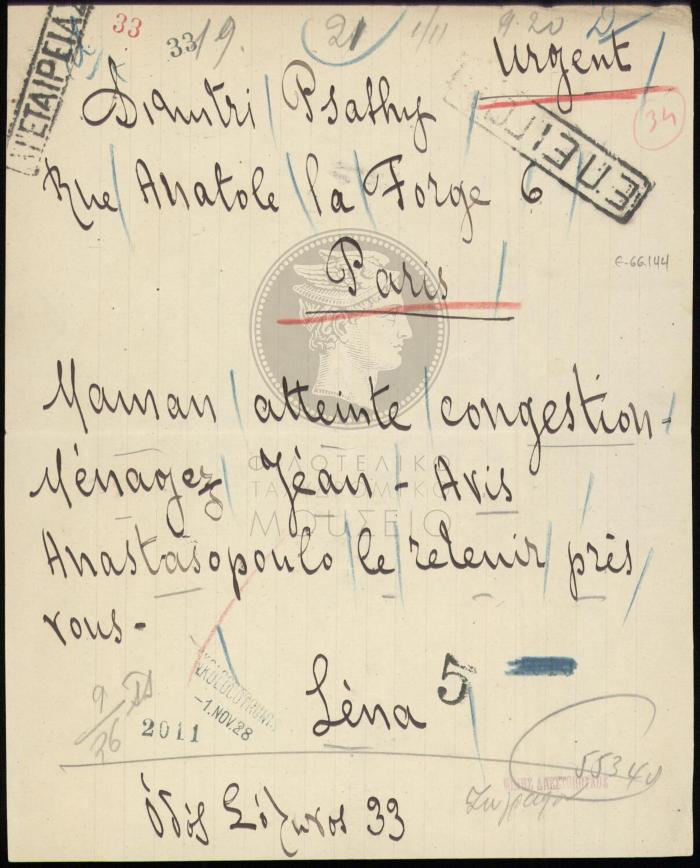 33 33 19. 21 1/11 9.20
Urgent
ΕΤΑΙΡΕΙΑΣ
Dimitri Psathy
34
ΕΠΕΙΓΟΝ
Rue Anatole la Forge 6
Paris
E-66144
Maman atteinte congestion-
Ménagez Jéan - Avis
ΦΙΛΟΤΕΛΙΚΟ
ΤΑΧΥΔΡΟΜΙΚΟ
ΜΟΥΣΕΙΟ
Anastasopoulo le retenir près
vous-
5
-1.NOV.28
Léna
9/26
2011
55340
Ὁδός Σόζωνος 33